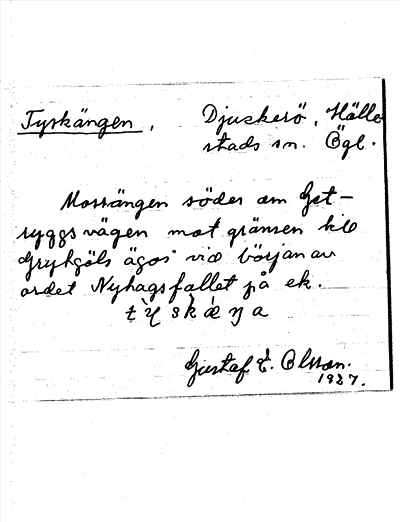 Tyskängen, Djuckerö, Hälle-
stads sn. Ögl.
Mossängen söder om Get-
ryggsvägen mot gränsen till
Grytgöls ägor vid början av
ordet Nyhagsfallet på ek.
Gustaf E. Olsson.
1927.